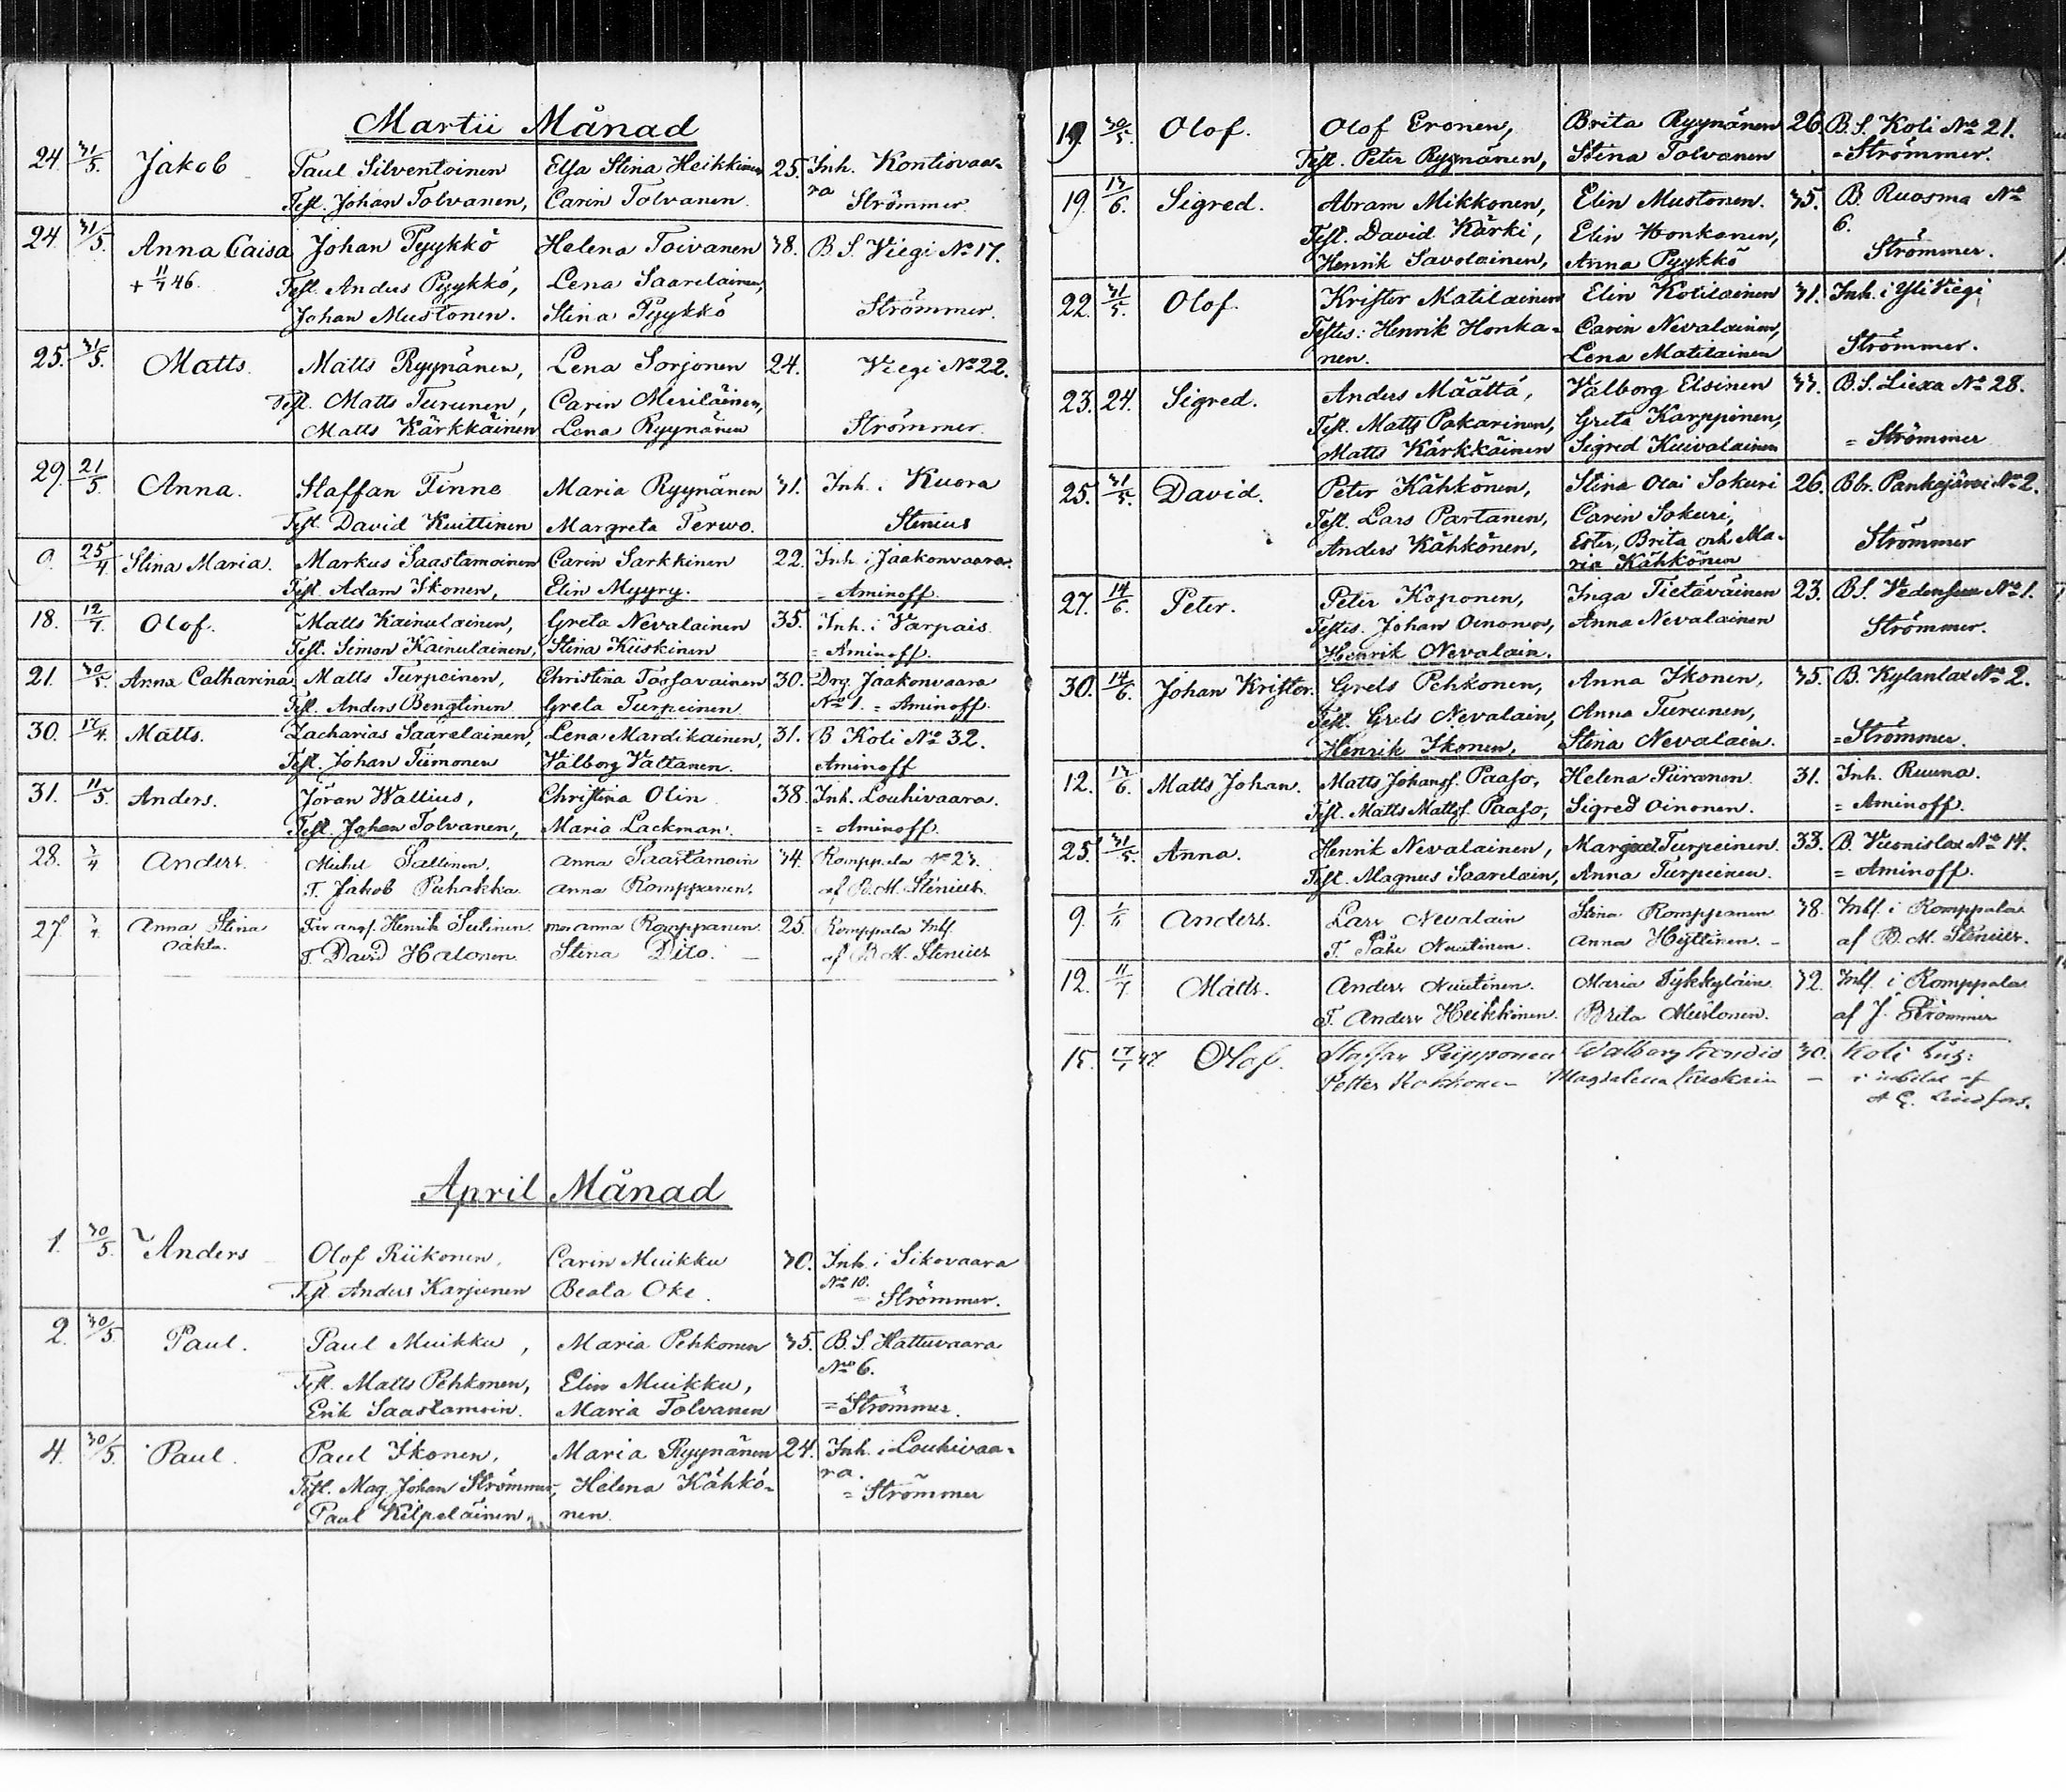 Martii Månad
24. 31/5. Jakob Paul Silventoinen Elsa Stina Heikkinen 25. Inh. Kontiovaa-
Test. Johan Tolvanen, Carin Tolvanen. ra Strömmer.
24. 31/5. Anna Caisa Johan Pyykkö Helena Toivanen 38. B.S. Viegi No 17.
+ 11/7 46. Test. Anders Pyykkö, Lena Saarelainen,
Johan Mustonen. Stina Pyykkö Strömmer.
25. 31/5. Matts. Matts Ryynänen, Lena Sorjonen 24. Viegi No 22.
Test. Matts Turunen, Carin Meriläinen,
Matts Kärkkäinen Lena Ryynänen Strömmer.
29. 21/5. Anna. Staffan Tinne Maria Ryynänen 31. Inh. i Kuora
Test. David Kuittinen Margreta Terwo. Stenius
9. 25/4. Stina Maria. Markus Saastamoinen Carin Sarkkinen 22. Inh. i Jaakonvaara.
Test. Adam Ikonen, Elin Myyry. = Aminoff.
18. 12/7. Olof. Matts Kainulainen, Greta Nevalainen 35. Inh. i Varpais.
Test. Simon Kainulainen, Stina Kiiskinen = Aminoff.
21. 30/5. Anna Catharina Matts Turpeinen, Christina Tossavainen 30. Drg. Jaakonvaara
Test. Anders Bengtinen Greta Turpeinen No 1. = Aminoff.
30. 17/4. Matts. Zacharias Saarelainen, Lena Mardikainen, 31. B Koli No 32.
Test. Johan Tiimonen Valborg Valtanen. Aminoff
31. 11/5. Anders. Jöran Wallius, Christina Olin 38. Inh. Louhivaara.
Test. Johan Tolvanen, Maria Lackman. = Aminoff.
28. 3/4 Anders. Michel Sallinen. Anna Saastamoin 34. Romppala No 23.
T. Jakob Puhakka Anna Romppanen. af B. M. Stenius
27. Anna Stina Henrik Sulinen. mor Anna Romppanen. 25. Romppala Inh.
oäkta. T. David Halonen. Stina Dito. — af B. M. Stenius
April Månad
1. 30/5. Anders Olof Riikonen, Carin Muikku 30. Inh. i Sikovaara
Test. Anders Karjunen Beata Oke. No 10. = Strömmer.
2. 30/5. Paul. Paul Muikku, Maria Pehkonen 35. B.S. Hattuvaara
No 6.
Test. Matts Pehkonen, Elin Muikku,
Erik Saastamoin. Maria Tolvanen = Strömmer.
4. 30/5. Paul. Paul Ikonen, Maria Ryynänen 24. Inh. i Louhivaa-
Test. Mag. Johan Strömmer, Helena Kähkö- ra. = Strömmer
Paul Kilpeläinen, nen.
19. 30/5. Olof. Olof Eronen, Brita Ryynänen 26. B.S. Koli No 21.
Test. Peter Ryynänen, Stina Tolvanen = Strömmer.
19. 13/6. Sigred. Abram Mikkonen, Elin Mustonen. 35. B. Ruosma No
6.
Test. David Kärki, Elin Honkanen,
Henrik Savolainen, Anna Pyykkö Strömmer.
22. 31/5. Olof. Krister Matilainen Elin Kotilainen 31. Inh. i Yli Viegi
Testes: Henrik Honka- Carin Nevalainen,
nen. Lena Matilainen Strömmer.
23. 24. Sigred. Anders Määttä, Valborg Elsinen 33. B.S. Liexa No 28.
Test. Matts Pakarinen, Greta Karppinen,
Matts Kärkkäinen Sigred Kuivalainen = Strömmer
25. 31/5. David. Peter Kähkönen, Stina Olai Sokuri 26. Bbr. Pankajärvi No 2.
Test. Lars Partanen, Carin Sokuri,
Anders Kähkönen, Ester, Brita och Ma- Strömmer
ria Kähkönen
27. 14/6. Peter. Peter Koponen, Inga Tietäväinen 23. B.S. No 1.
Testes. Johan Oinonen, Anna Nevalainen Strömmer.
Henrik Nevalain.
30. 14/6. Johan Krister. Grels Pehkonen, Anna Ikonen, 35. B. Kylanlax No 2.
Test. Grels Nevalain, Anna Turunen,
Henrik Ikonen, Stina Nevalain. = Strömmer.
12. 13/6. Matts Johan. Matts Johanss. Paaso, Helena Piiranen 31. Inh. Ruuna.
Test. Matts Mattss. Paaso, Sigred Oinonen. = Aminoff.
25. 31/5. Anna. Henrik Nevalainen, Margret Turpeinen. 33. B. Vuonislax No 14.
Test. Magnus Saarelain, Anna Turpeinen. = Aminoff.
9. Anders. Lars Nevalain Stina Romppanen 38. Inh. i Romppala
T. Påhl Nuutinen. Anna Hyttinen. - af B. M. Stenius.
12. 11/7. Matts. Anders Nuutinen. Maria Tykkyläin. 32. Inh. i Romppala
T. Anders Heikkinen. Brita Mustonen. af J. Strömmer
15. 17/1 47. Olof. Staffan Piipponen Walborg 30. Koli
Petter Kokkonen Magdalena —